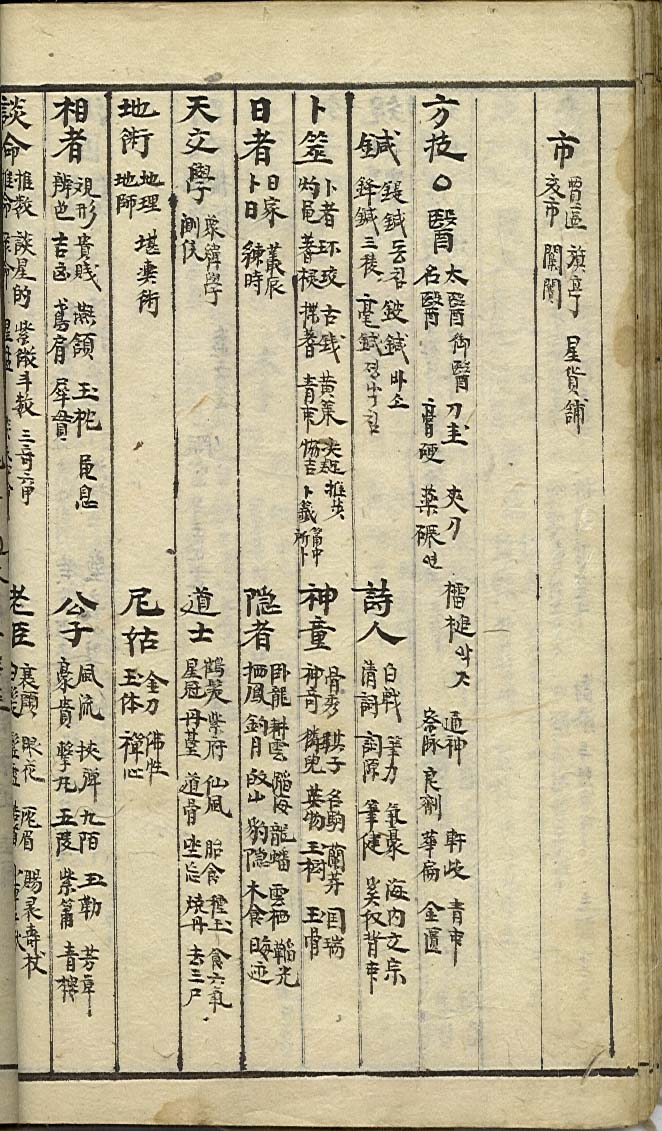 市 賈區 旗亭 星貨舖
交市 闤闠
方技 ○ 醫 太醫 御醫 刀圭 夾刀
名醫 膏硬 藥碾
通神 軒岐 青申
察脉 良劑 華扁 金匱
鍼 鍉鍼 鈹鍼
鋒鍼 三稜 毫鍼
詩人 白戰 筆力 氣豪 海内文宗
清詞 詞源 筆健 奚奴背
卜筮 卜者 环珓 古錢 黃策
灼龜 蓍 揲蓍 青 協吉 卜
神童 骨秀 騏子 名駒 蘭芽 国瑞
神奇 獜兒 英物 玉樹 玉骨
日者 日家 叢辰
卜日 鍊時
隐者 卧龍 耕雲 蹈海 龍蟠 雲栖 韜光
栖鳳 釣月 啟山 豹隐 木食 晦迹
天文學 象緯學
測候
道士 鶴氅 紫府 仙風 胎食 種玉 食六氣
星冠 丹臺 道骨 坐忘 燒丹 去三尸
地術 地理 堪輿術
地師
尼姑 金刀 佛性
玉体 禪心
相者 視形 貴賤 燕頷 玉枕 龜息
辨色 吉凶 鳶肩 犀貫
公子 風流 挾彈 九陌 玉勒 芳草
豪貴 擊丸 五陵 紫簫 青樓
談命 推數 談星的 紫微斗數 三奇六甲
老臣 眼花 厖眉 賜衮 壽杖